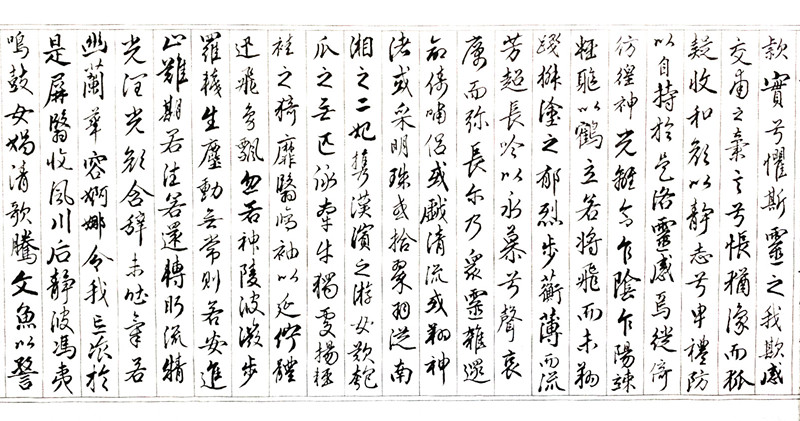 款實兮懼斯靈之我欺感
交甫之棄言兮悵猶豫而狐
疑收和顏以靜志兮申禮防
以自持於是洛靈感焉徙倚
彷徨神光離合乍陰乍陽竦
輕軀以鶴立若將飛而未翔
踐椒塗之郁烈步蘅薄而流
芳超長吟以永慕兮聲哀
厲而弥長尔乃衆靈雜遝
命儔嘯侶或戲清流或翔神
渚或采明珠或拾翠羽從南
湘之二妃攜漢濱之游女歎匏
瓜之無匹詠牽牛獨處揚輕
袿之猗靡翳脩袖以延佇體
迅飛鳧飄忽若神陵波微步
羅襪生塵動無常則若安進
止難期若往若還轉眄流精
光潤光顏含辭未吐氣若
幽蘭華容婀娜令我忘飡於
是屏翳收風川后靜波馮夷
鳴鼓女媧清歌騰文魚以警